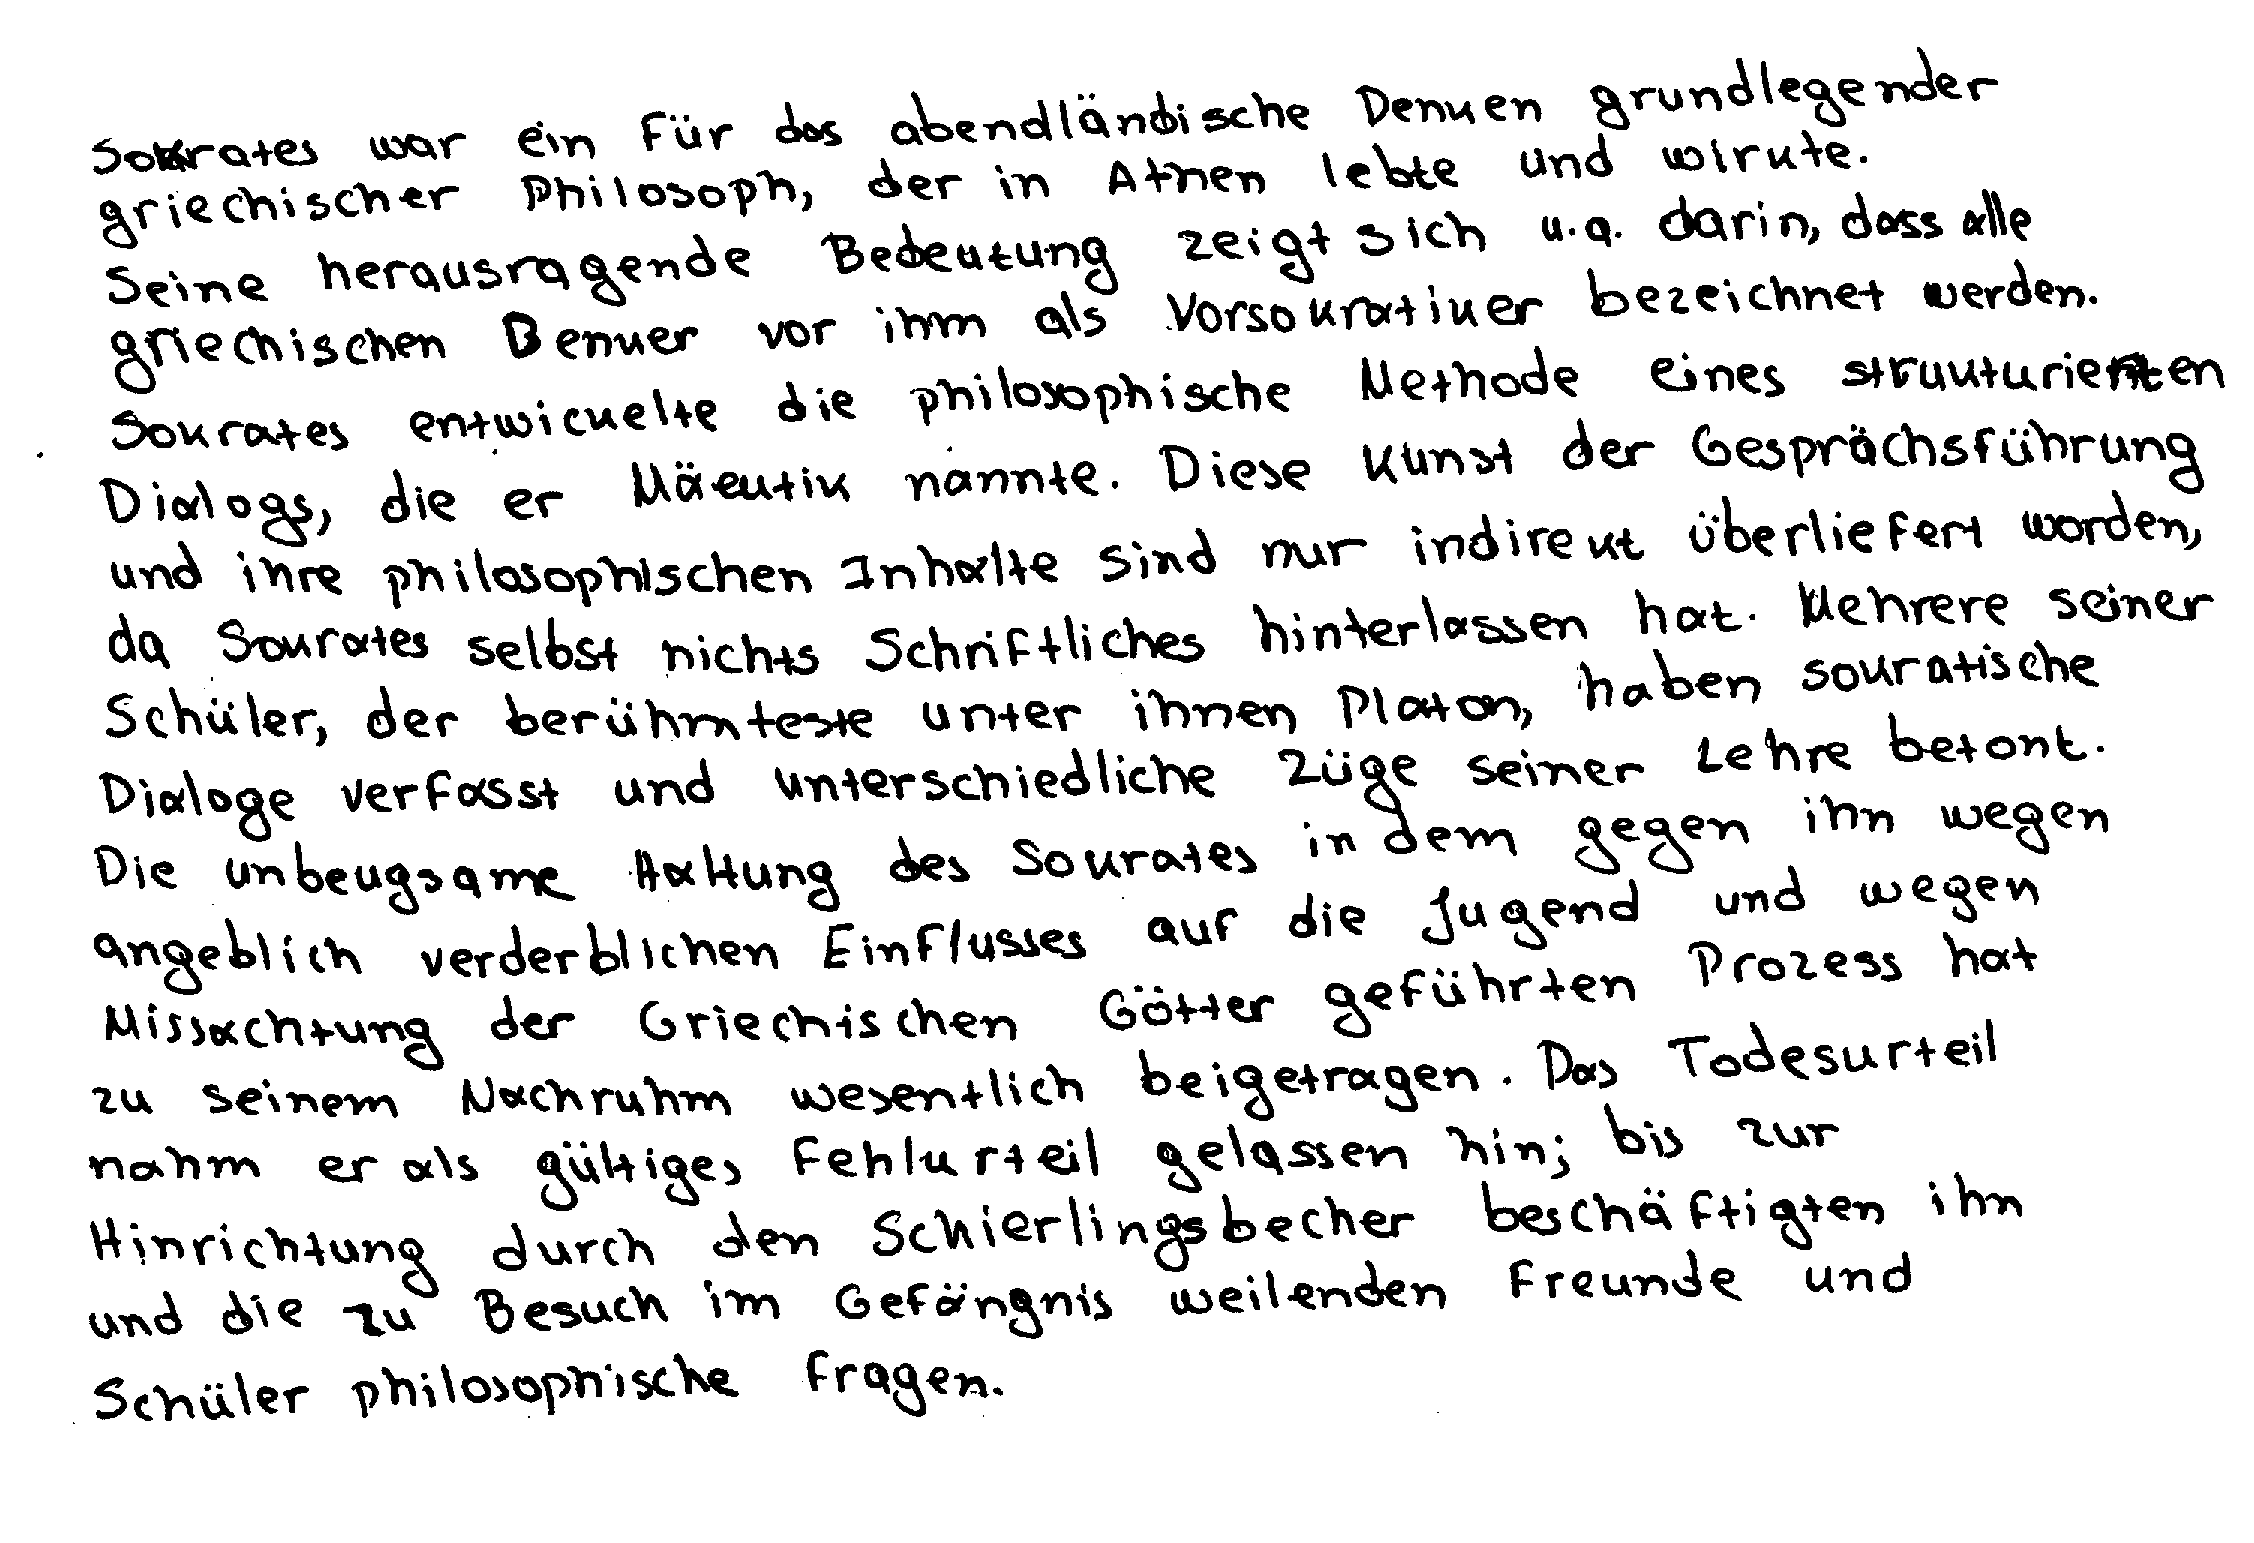 Sokrates war ein für das abendländische Denken grundlegender
griechischer Philosoph, der in Athen lebte und wirkte.
Seine herausragende Bedeutung zeigt sich u.a. darin, dass alle
griechischen Denker vor ihm als Vorsokratiker bezeichnet werden.
Sokrates entwickelte die philosophische Methode eines strukturierten
Dialogs, die er Mäeutik nannte. Diese Kunst der Gesprächsführung
und ihre philosophischen Inhalte sind nur indirekt überliefert worden,
da Sokrates selbst nichts Schriftliches hinterlassen hat. Mehrere seiner
Schüler, der berühmteste unter ihnen Platon, haben sokratische
Dialoge verfasst und unterschiedliche Züge seiner Lehre betont.
Die unbeugsame Haltung des Sokrates in dem gegen ihn wegen
angeblich verderblichen Einflusses auf die Jugend und wegen
Missachtung der Griechischen Götter geführten Prozess hat
zu seinem Nachruhm wesentlich beigetragen. Das Todesurteil
nahm er als gültiges Fehlurteil gelassen hin; bis zur
Hinrichtung durch den Schierlingsbecher beschäftigten ihn
und die zu Besuch im Gefängnis weilenden Freunde und
Schüler philosophische Fragen.